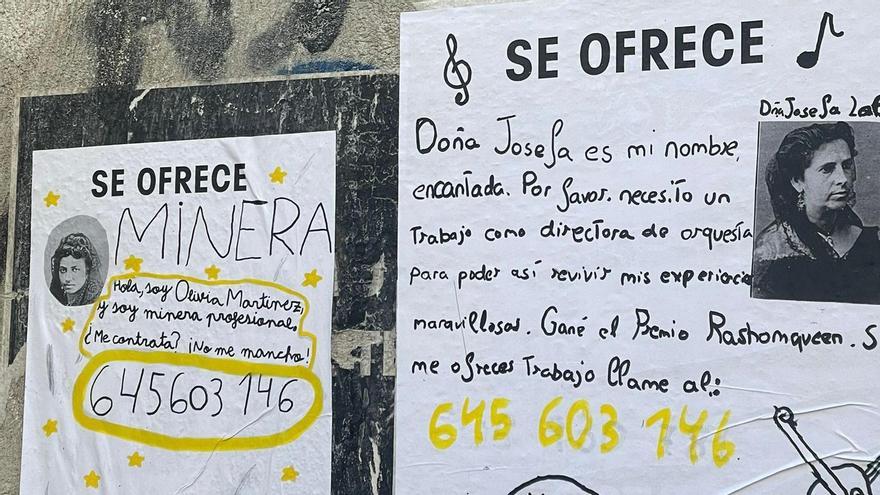 SE OFRECE
MINERA
Hola, soy Olivia Martinez,
y soy minera profesional,
¿Me contrata? ¡No me mancho!
645603146
SE OFRECE
Doña Josefa es mi nombre,
encantada. Por favor. necesito un
Trabajo como directora de orquesta
para poder así revivir mis experiencia
maravillosas. Gané el Premio Rashomqueen. S
me ofreces Trabajo llame al:
645 603 146
Dña Josefa